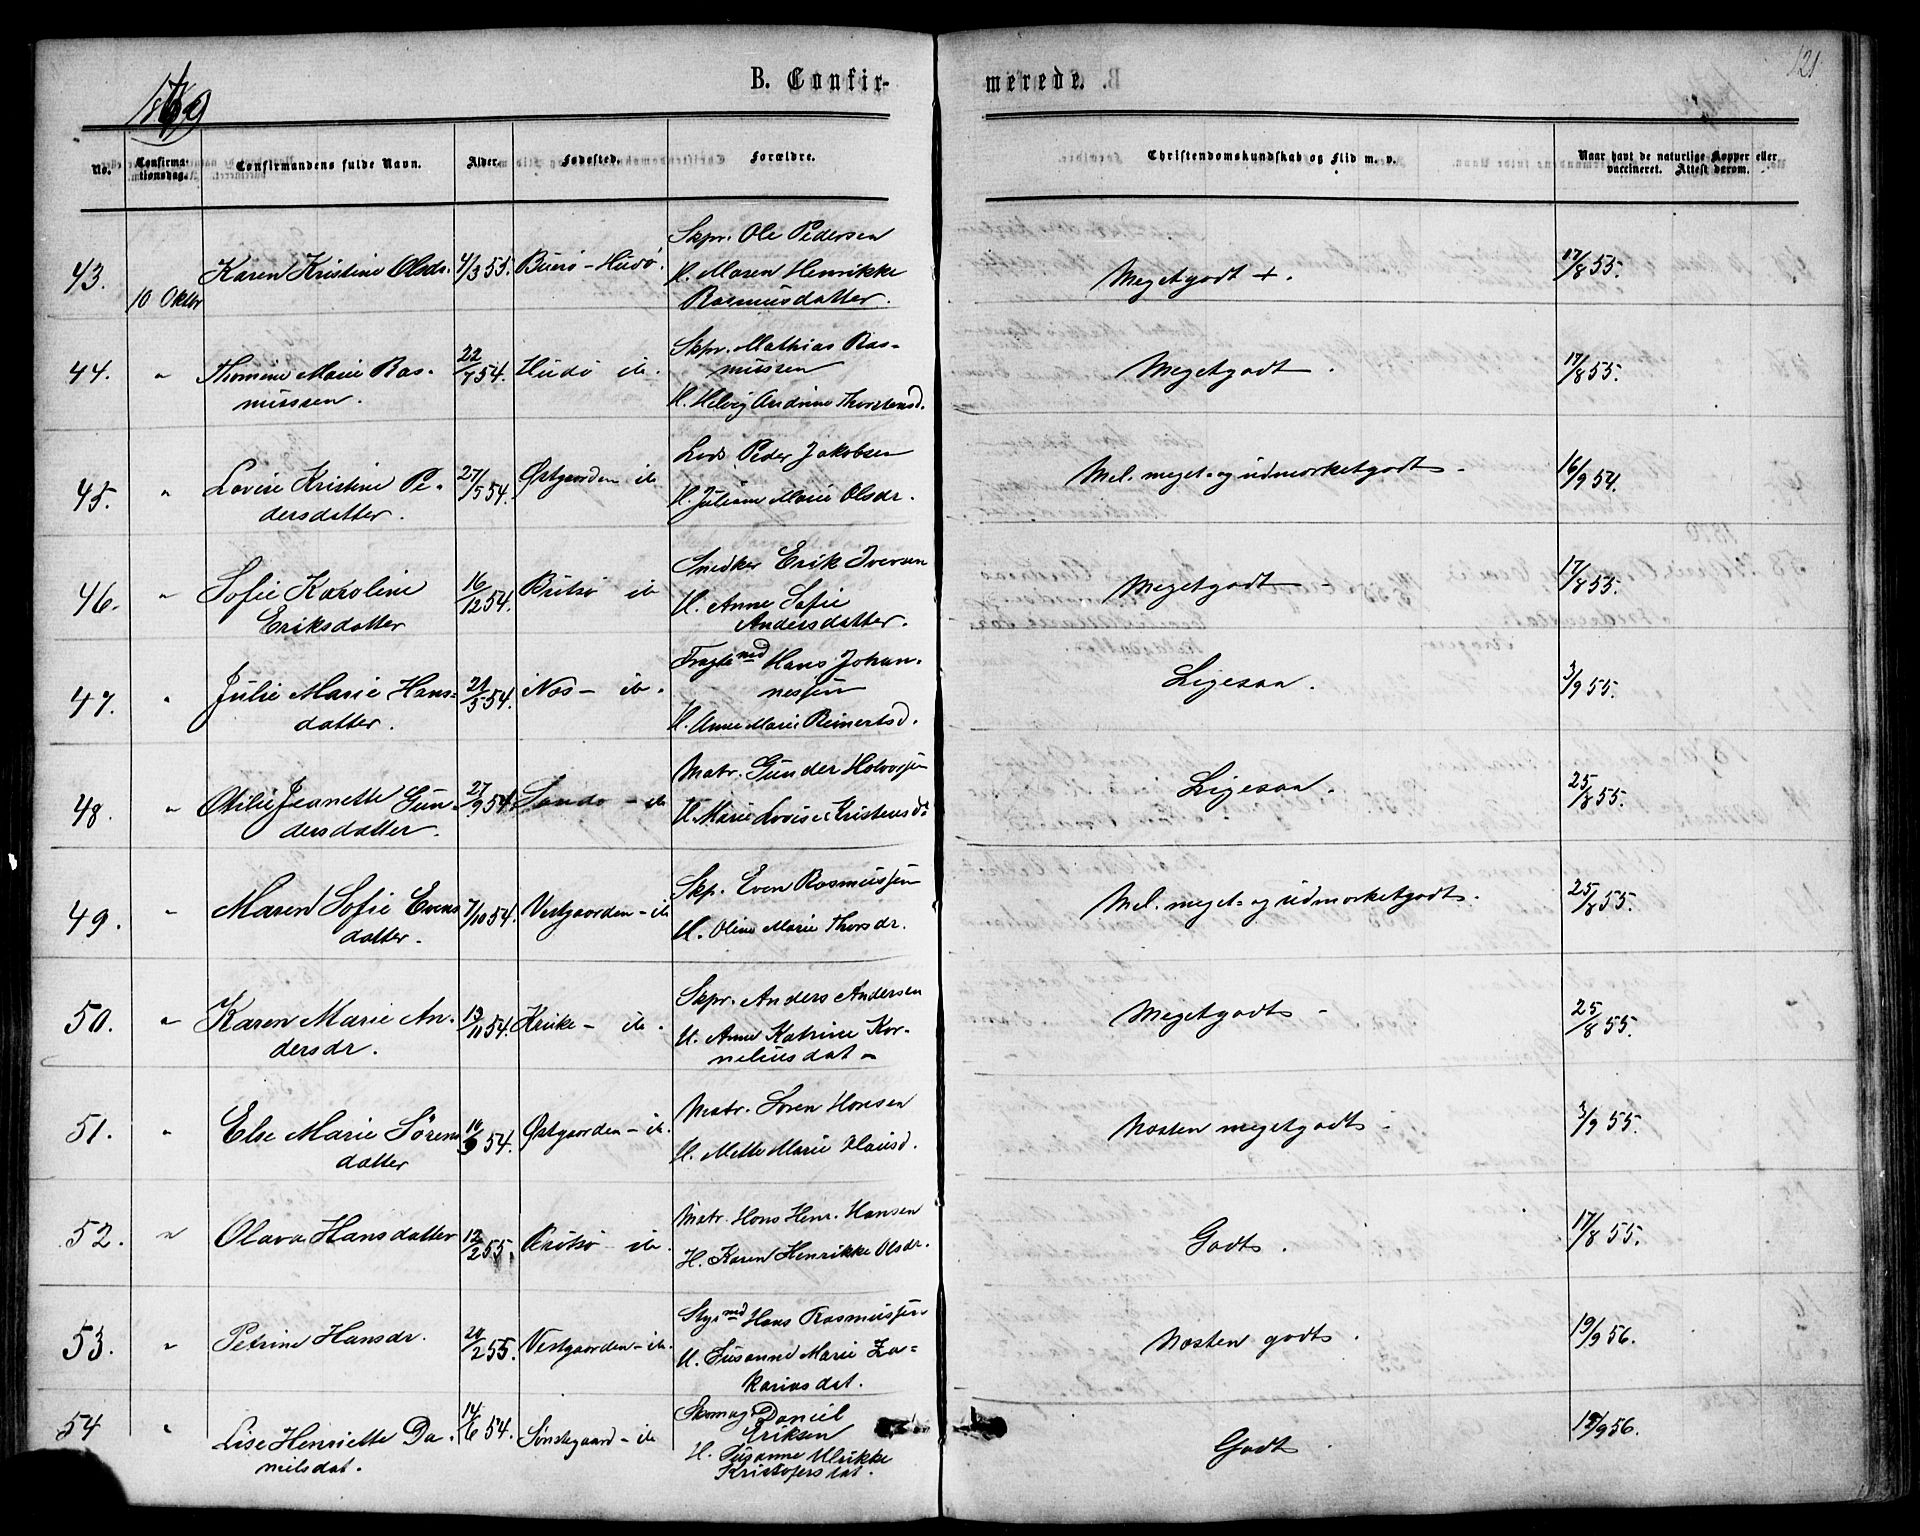 121
1869
B. Confirmerede.
No.
Confirmationsdag.
Confirmandens fulde Navn.
Alder.
Fødested.
Forældre.
Christendomskundskab og Flid m. v.
Naar havt de naturlige Kopper eller vaccineret. Attest derom.
43. 10 Oktbr Karen Kristine Olsdr. 4/3 55. Buerø - Hudø. Skpr. Ole Pedersen
H. Maren Henrikke
Rasmusdatter.
Megetgodt +. 17/8 55.
44. " Thomine Marie Ras-
mussen. 22/7 54. Hudø ib. Skpr. Mathias Ras-
mussen
H. Helvig Andrine Thorstensd.
Megetgodt. 17/8 55.
45. " Lovise Kristine Pe-
dersdatter. 27/5 54. Østgaarden ib Lods Peder Jakobsen
H. Juliane Marie Olsdr.
Mel. meget- og udmærketgodts. 16/9 54.
46. " Sofie Karoline
Eriksdatter 16/12 54. ib Snedker Erik Iversen
H. Anne Sofie
Andersdatter.
Megetgodt - 17/8 55.
47. " Julie Marie Hans-
datter. 21/5 54. Næs - ib. Hans Johan-
nessen
H. Anne Marie Reinertsd.
Ligesaa. 3/9 55.
48. " Otilie Jeanette Gun-
dersdatter. 27/9 54. Sandø - ib Matr. Gunder Halvorsen
H. Marie Lovise Kristensdt
Ligesaa. 25/8 55.
49. " Maren Sofie Evens
datter. 7/10 54. Vestgaarden - ib Skp. Even Rasmussen
H. Oline Marie Thorsdr.
Mel. meget- og udmærketgodts. 25/8 55.
50. " Karen Marie An-
dersdr. 13/11 54. Kruke - ib. Skpr. Anders Andersen
H. Anne Katrine Kor-
neliusdat -
Megetgodts - 25/8 55.
51. " Else Marie Sørens
datter 54. Østgaarden - ib. Matr. Søren Hansen
H. Mette Marie Hansd.
Næsten megetgodts - 3/9 55.
52. " Olava Hansdatter 12/2 55. ib. Matr. Hans Henr. Hansen
H. Karen Henrikke Olsdr.
Godts. 17/8 55.
53. " Petrine Hansdr. 20/2 55. Vestgaarden - ib. Styrmd Hans Rasmussen
H. Susanne Marie Za-
kariasdat.
Næsten godts. 19/9 56.
54 " Lise Henriette Da-
nielsdat. 14/6 54. ib Daniel
Eriksen
H. Susanne Ulrikke
Kristofersdat.
Godts. 19/9 56.